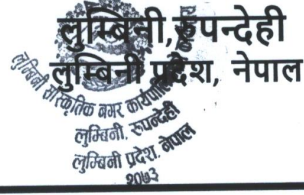 लुम्बिनी,रुपन्देही
लुम्बिनी प्रदेश, नेपाल
लुम्बिनी सांस्कृतिक नगर
लुम्बिनी, रुपन्देही
लुम्बिनी प्रदेश, नेपाल
२०७३